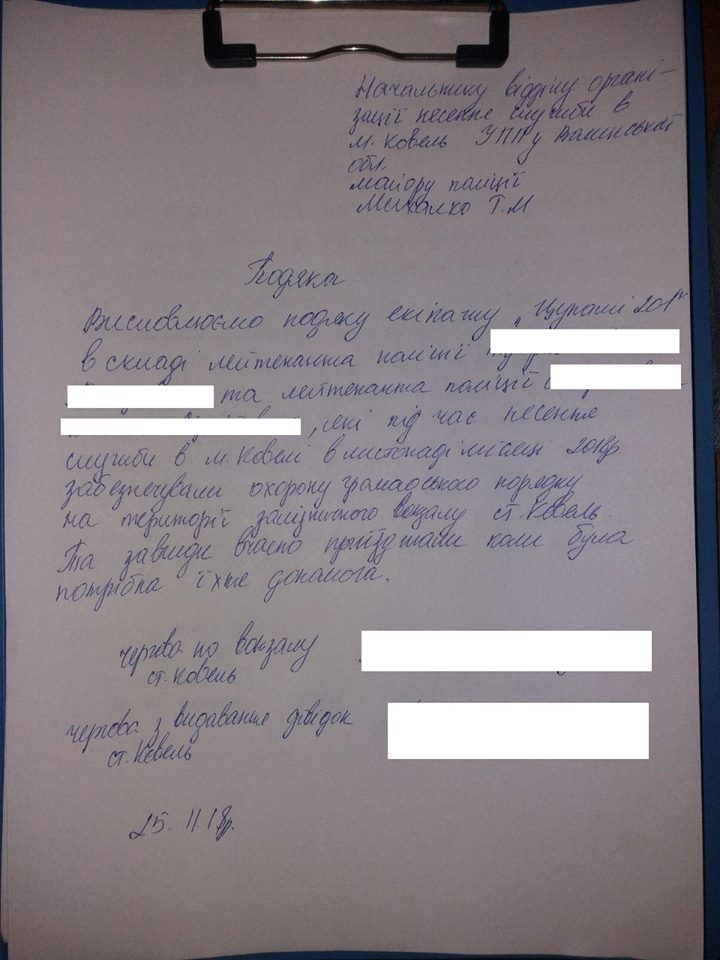 Начальнику відділу органі-
зації несення служби в
м. Ковель УПП у Волинській
обл.
майору поліції
Михалко Т.М
Подяка
Висловлюємо подяку екіпажу „Цунамі 201"
в складі лейтенанта поліції
та лейтенанта поліції
, які під час несення
служби в м. Ковелі в листопаді місяці 2018р.
забезпечували охорону громадського порядку
на території залізничного вокзалу ст. Ковель.
Та завжди вчасно приїзджали коли була
потрібна їхня допомога.
чергова по вокзалу
ст. Ковель
чергова з видавання довідок
ст. Ковель
25. 11. 18р.